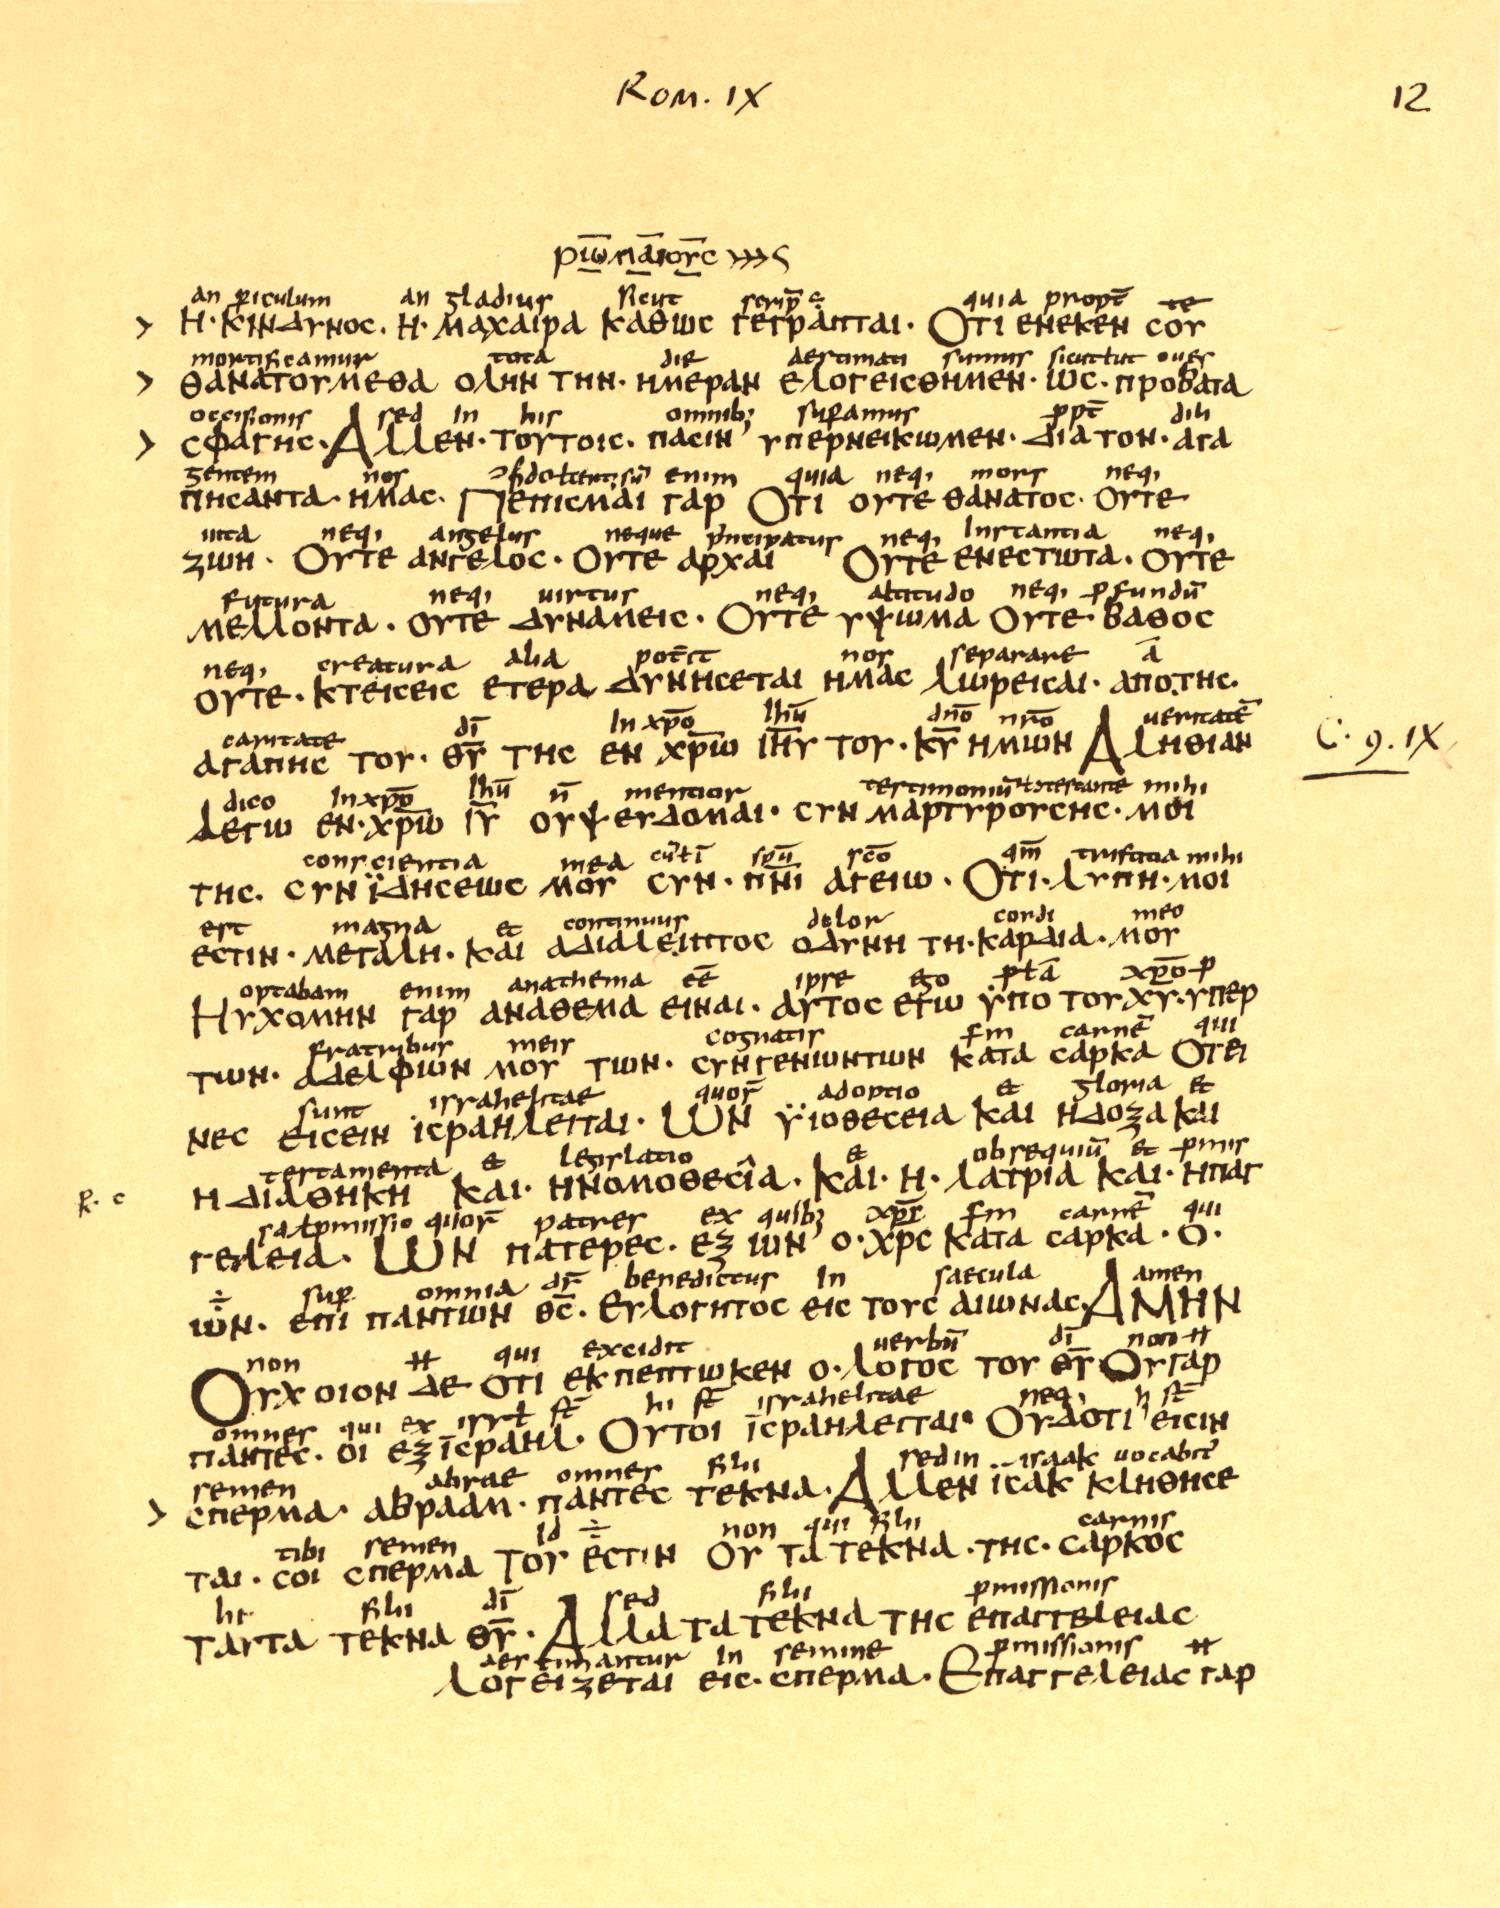 Rom. IX
12
ρ̅ι̅ωμα̅ιου̅ς
an periculum an gladius sicut scrip̄ ē quia propt̄ te
> Η· ΚΙΝΔΥΝΟC· Η· ΜΑΧΑΙΡΑ ΚΑΘѠC ΓΕΓΡΑΠΤΑΙ· ΟΤΙ ΕΝΕΚΕΝ CΟΥ
mortificamur tota die aestimati sumus sicut ut oues
> ΘΑΝΑΤΟΥΜΕΘΑ ΟΛΗΝ ΤΗΝ· ΗΜΕΡΑΝ ΕΛΟΓΕΙCΘΗΜΕΝ· ѠC· ΠΡΟΒΑΤΑ
occisionis sed in his omnib; superamus ppt̄ dili
> CΦΑΓΗC· ΑΛΛΕΝ· ΤΟΥΤΟΙC· ΠΑCΙΝ ΥΠΕΡΝΕΙΚѠΜΕΝ· ΔΙΑ ΤΟΝ· ΑΓΑ
gentem nos enim quia neq; mors neq;
ΠΗCΑΝΤΑ· ΗΜΑC· ΠΕΠΙCΜΑΙ ΓΑΡ ΟΤΙ ΟΥΤΕ ΘΑΝΑΤΟC· ΟΥΤΕ
uita neq; angelus neque principatus neq; Instantia neq;
ΖѠΗ· ΟΥΤΕ ΑΝΓΕΛΟC· ΟΥΤΕ ΑΡΧΑΙ ΟΥΤΕ ΕΝΕCΤѠΤΑ· ΟΥΤΕ
futura neq; uirtus neq; altitudo neq; pfundū
ΜΕΛΛΟΝΤΑ· ΟΥΤΕ ΔΥΝΑΜΕΙC· ΟΥΤΕ ΥΨѠΜΑ ΟΥΤΕ· ΒΑΘΟC
neq; creatura alia potērit nos separare ā
ΟΥΤΕ· ΚΤΕΙCΕΙC ΕΤΕΡΑ ΔΥΝΗCΕΤΑΙ ΗΜΑC ΛѠΡΕΙCΑΙ· ΑΠΟ·ΤΗC·
caritate dī In xpō Ihū dnō nrō ueritatē
ΑΓΑΠΗC ΤΟΥ· Θ̅Υ̅ ΤΗC ΕΝ ΧΡ̅Ѡ ΙΗ̅Υ ΤΟΥ· Κ̅Υ̅ ΗΜѠΝ ΑΛΗΘΙΑΝ
C. 9. IX
dico In xpō Ihū n̄ mentior testimoniū mihi
ΛΕΓѠ ΕΝ· ΧΡ̅Ѡ Ι̅Υ̅ ΟΥΨΕΥΔΟΜΑΙ· CΥΝ ΜΑΡΤΥΡΟΥCΗC· ΜΟΙ
conscientia mea spū scō qm̄ tristitia mihi
ΤΗC· CΥΝΪΔΗCΕѠC ΜΟΥ CΥΝ· ΠΝ̅Ι ΑΓΕΙѠ· ΟΤΙ· ΛΥΠΗ· ΜΟΙ
est magna et continuus dolor cordi meo
ΕCΤΙΝ· ΜΕΓΑΛΗ· ΚΑΙ ΑΔΙΑΛΕΙΠΤΟC ΟΔΥΝΗ ΤΗ· ΚΑΡΔΙΑ· ΜΟΥ
optabam enim anathema eē ipse ego xpō p
ΗΥΧΟΜΗΝ ΓΑΡ ΑΝΑΘΕΜΑ ΕΙΝΑΙ· ΑΥΤΟC ΕΓѠ ΥΠΟ ΤΟΥ ΧΥ· ΥΠΕΡ
fratribus meis cognatis scdm carnē qui
ΤѠΝ· ΑΔΕΛΦѠΝ ΜΟΥ ΤѠΝ· CΥΝΓΕΝΙѠΝΤѠΝ ΚΑΤΑ CΑΡΚΑ ΟΤΕΙ
sunt israhelitae quor̄ adoptio et gloria et
ΝΕC ΕΙCΕΙΝ ΙCΡΑΗΛΕΙΤΑΙ· ѠΝ ΫΙΟΘΕCΕΙΑ ΚΑΙ ΗΔΟΞΑ ΚΑΙ
testamenta et legislatio et obsequiū et pmis
R. c Η ΔΙΑΘΗΚΗ ΚΑΙ· ΗΝΟΜΟΘΕCΙΑ· ΚΑΙ· Η· ΛΑΤΡΙΑ ΚΑΙ· ΗΠΑΓ
quor̄ patres ex quib; xps̄ scdm carnē qui
ΓΕΛΕΙΑ· ѠΝ ΠΑΤΕΡΕC· ΕΞ ѠΝ Ο· ΧΡC ΚΑΤΑ CΑΡΚΑ· Ο·
÷ sup omnia ds̄ benedictus In saecula amen
ѠΝ· ΕΠΙ ΠΑΝΤѠΝ Θ̅C̅· ΕΥΛΟΓΗΤΟC ΕΙC ΤΟΥC ΑΙѠΝΑC· ΑΜΗΝ
non qui excidit uerbū dī non
ΟΥΧ ΟΙΟΝ ΔΕ ΟΤΙ ΕΚΠΕΠΤѠΚΕΝ Ο· ΛΟΓΟC ΤΟΥ Θ̅Υ̅ ΟΥΓΑΡ
omnes qui ex isrl st̄ hi st̄ israhelitae neq; st̄
ΠΑΝΤΕC· ΟΙ ΕΞ ΙCΡΑΗΛ· ΟΥΤΟΙ ΙCΡΑΗΛΕΙΤΑΙ· ΟΥΔΟΤΙ ΕΙCΙΝ
semen abrae omnes filii sed in isaak uocabit̄
> CΠΕΡΜΑ· ΑΒΡΑΑΜ· ΠΑΝΤΕC ΤΕΚΝΑ· ΑΛΛΕΝ ΪCΑΚ ΚΛΗΘΗCΕ
tibi semen Id ÷ non qui filii carnis
ΤΑΙ· CΟΙ CΠΕΡΜΑ ΤΟΥ ΕCΤΙΝ ΟΥ ΤΑ ΤΕΚΝΑ· ΤΗC· CΑΡΚΟC
hi filii dī sed filii pmissionis
ΤΑΥΤΑ ΤΕΚΝΑ Θ̅Υ̅· ΑΛΛΑ ΤΑ ΤΕΚΝΑ ΤΗC ΕΠΑΓΓΕΛΕΙΑC
aestimantur In semine pmissionis
ΛΟΓΕΙΖΕΤΑΙ ΕΙC· CΠΕΡΜΑ· ΕΠΑΓΓΕΛΕΙΑC ΓΑΡ